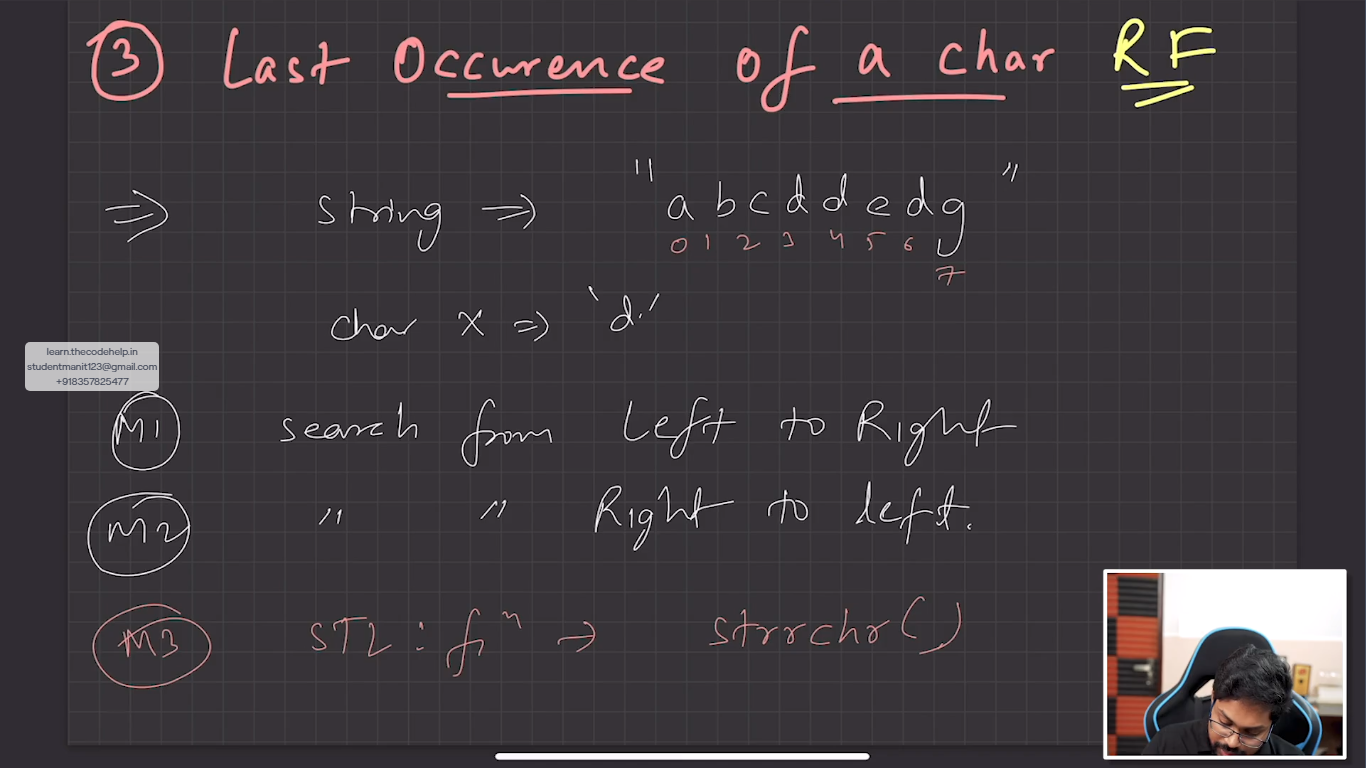 3 Last Occurence of a char RF
⇒ string ⇒ "abcddedg"
0 1 2 3 4 5 6 7
char x ⇒ 'd'
learn.thecodehelp.in
studentmanit123@gmail.com
+918357825477
M1 search from Left to Right
M2 " " Right to left.
M3 STL : fⁿ → strrchr()